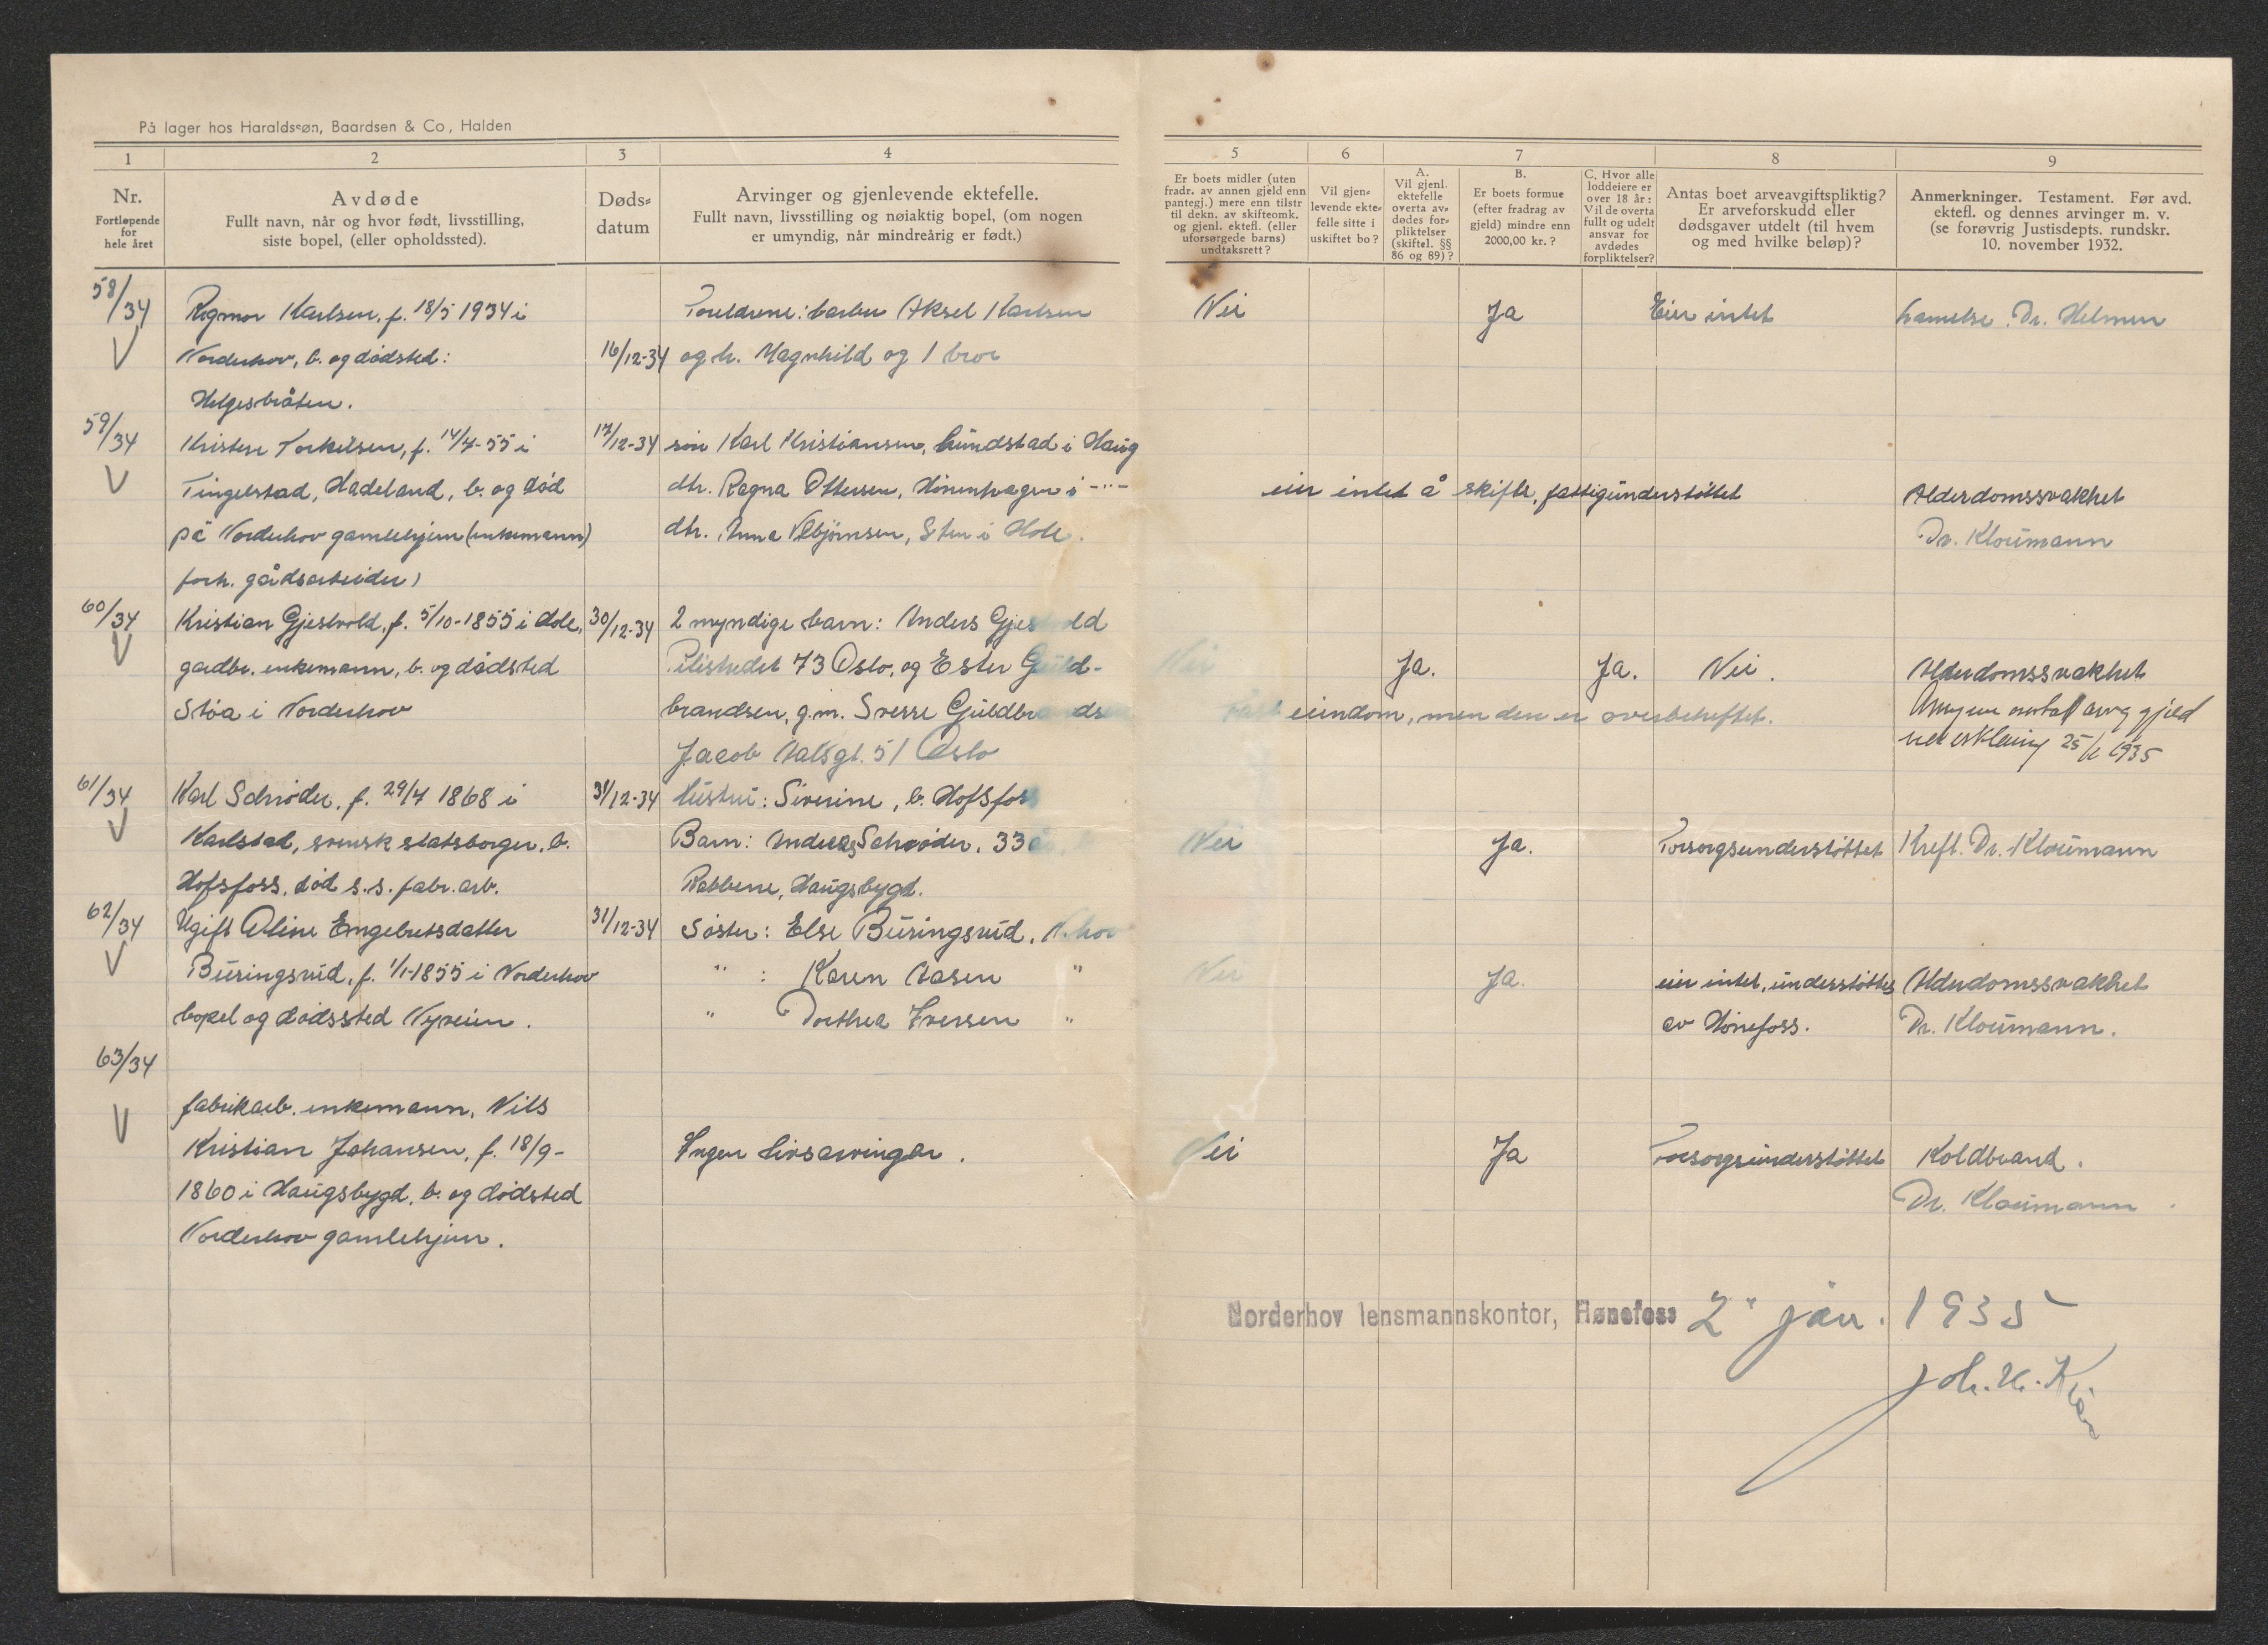 På lager hos Haraldssøn, Baardsen & Co, Halden
1 2 3 4 5 6 7 8 9
Nr.
Fortløpende
for
hele året
Avdøde
Fullt navn, når og hvor født, livsstilling,
siste bopel, (eller opholdssted).
Døds-
datum
Arvinger og gjenlevende ektefelle.
Fullt navn, livsstilling og nøiaktig bopel, (om nogen
er umyndig, når mindreårig er født.)
Er boets midler (uten
fradr. av annen gjeld enn
pantegj.) mere enn tilstr
til dekn. av skifteomk.
og gjenl. ektefl. (eller
uforsørgede barns)
undtaksrett?
Vil gjen-
levende ekte-
felle sitte i
uskiftet bo?
A.
Vil gjenl.
ektefelle
overta av-
dødes for-
pliktelser
(skiftel. §§
86 og 89)?
B.
Er boets formue
(efter fradrag av
gjeld) mindre enn
2000,00 kr.?
C. Hvor alle
loddeiere er
over 18 år:
Vil de overta
fullt og udelt
ansvar for
avdødes
forpliktelser?
Antas boet arveavgiftspliktig?
Er arveforskudd eller
dødsgaver utdelt (til hvem
og med hvilke beløp)?
Anmerkninger. Testament. Før avd.
ektefl. og dennes arvinger m. v.
(se forøvrig Justisdepts. rundskr.
10. november 1932.
58/34 Rigmor Karlsen, f. 18/5 1934 i Foreldrene: Aksel Karlsen Nei Ja Eier intet Dr. Helmen
Norderhov, b. og dødsted: 16/12-34 og h. Magnhild og 1 bror
Helgesbråten.
59/34 Torkelsen, f. 14/4-55 i 17/12-34 søn Karl Kristiansen, Hundstad i Haug
Tingelstad, Hadeland, b. og død dtr. Ragna Ottersen, Hønenhagen i -"- eier intet å skifte, fattigunderstøttet Alderdomssvakhet
på Norderhov gamlehjem (enkemann) dtr. Anna Albjørnsen, Sten i Hole. Dr. Kloumann
forh. gårdsarbeider)
60/34 Kristian Gjesvold, f. 5/10-1855 i Hole, 30/12-34 2 myndige barn: Anders Gjesvold
gardbr. enkemann, b. og dødsted Pilestredet 73 Oslo, og Ester Guld- Nei Ja. Ja. Nei. Alderdomssvakhet
Støa i Norderhov brandsen, g.m. Sverre Guldbrandsen eiendom, men den er overbeheftet. gjeld
Jacob Aalsgt. 51 Oslo 1935
61/34 Karl Schrøder, f. 29/4 1868 i 31/12-34 hustru: Siverine, b. Hofsfoss
Karlstad, svensk statsborger, b. Barn: Andreas Schrøder, 33 Nei Ja. Forsorgsunderstøttet Kreft. Dr. Kloumann
Hofsfoss, død s.s. fabr. arb. Rabbene, Haugsbygd.
62/34 Ugift Oline Engebretsdatter 31/12-34 Søster: Else Buringsrud, N.hov
Buringsrud, f. 1/1-1855 i Norderhov " : Karen Aasen " Nei Ja. eier intet, understøttes Alderdomssvakhet
bopel og dødssted Nyveien. " Dorthea Iversen " av Hønefoss. Dr. Kloumann.
63/34
fabrikarb. enkemann, Nils
Kristian Johansen, f. 18/9- Ingen livsarvinger. Nei Ja Forsorgsunderstøttet Koldbrand.
1860 i Haugsbygd, b. og dødsted Dr. Kloumann.
Norderhov gamlehjem.
Norderhov lensmannskontor, Hønefoss 2 jan. 1935